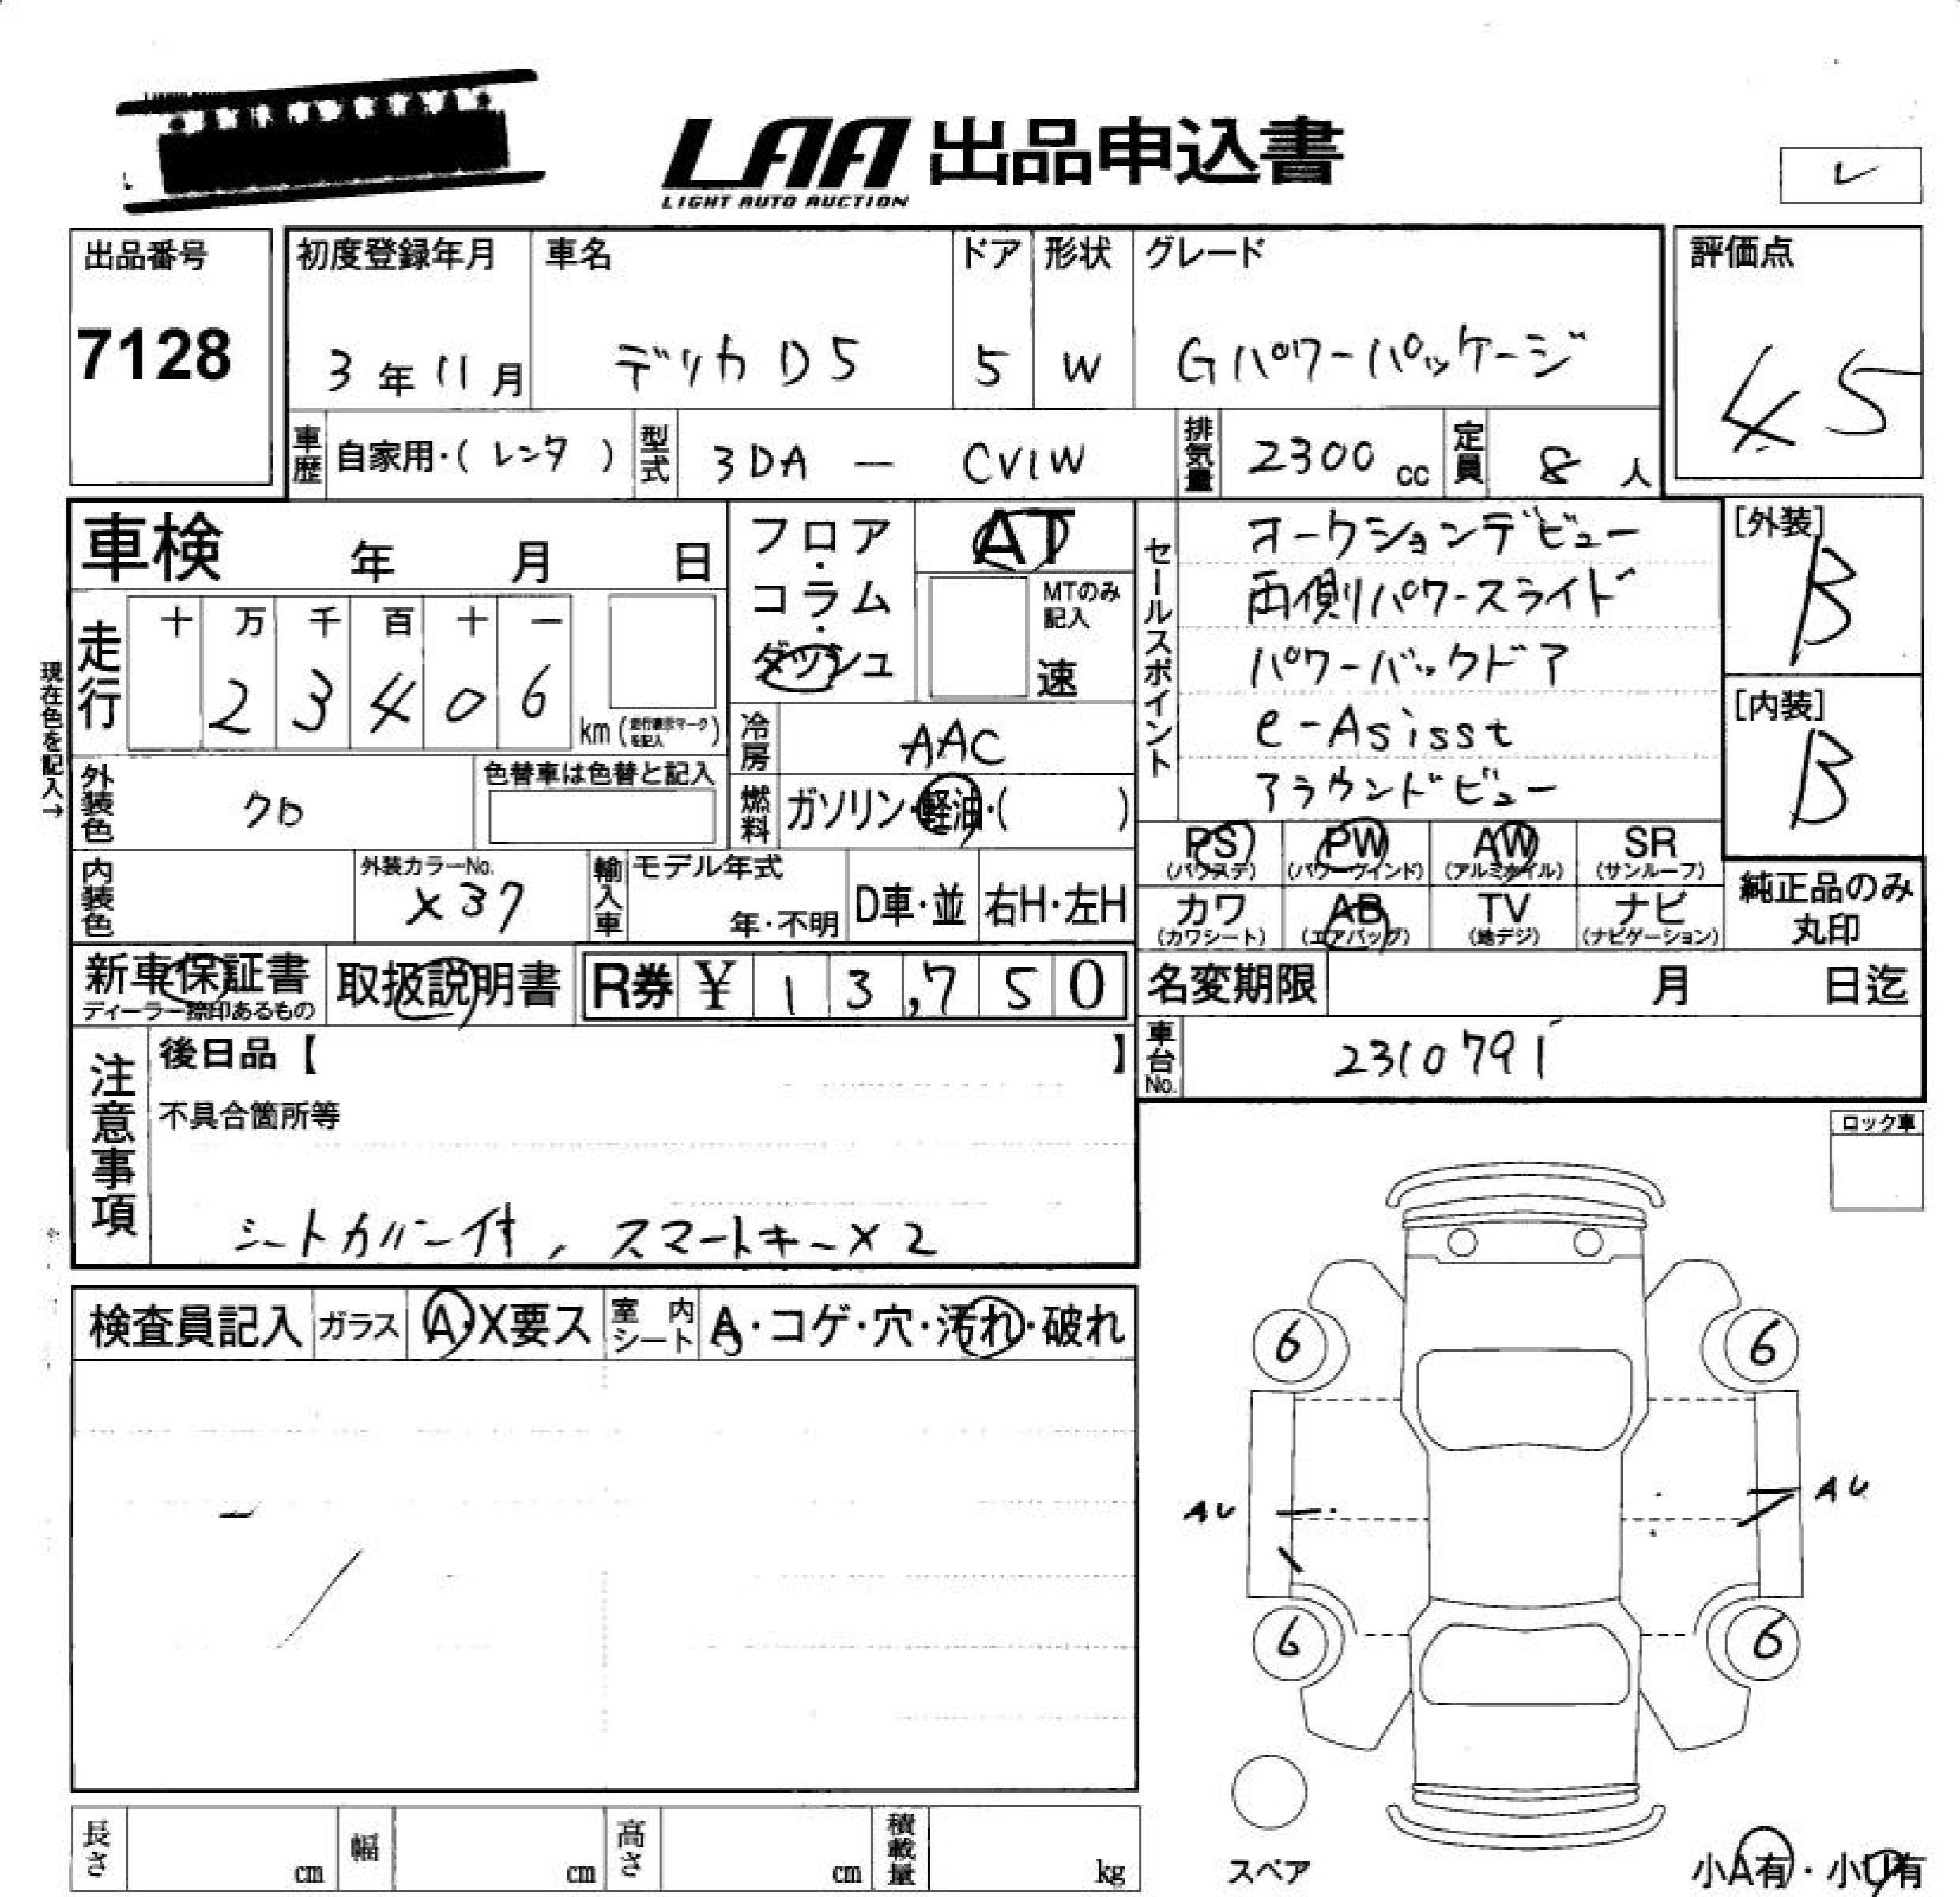 LAA 出品申込書
LIGHT AUTO AUCTION
レ
出品番号
7128
初度登録年月
3年11月
車名
デリカD5
ドア
5
形状
W
グレード
Gパワーパッケージ
評価点
4 5
車歴
自家用・(レンタ)
型式
3DA — CV1W
排気量
2300cc
定員
8人
車検 年 月 日
フロア・コラム・ダッシュ
AT
MTのみ記入
速
セールスポイント
オークションデビュー
両側パワースライド
パワーバックドア
e-Asisst
アラウンドビュー
[外装]
B
[内装]
B
現在色を記入→
走行
十 万 千 百 十 一
2 3 4 0 6
km(走行表示マークを記入)
冷房
AAC
外装色
クロ
色替車は色替と記入
燃料
ガソリン・軽油・( )
PS
(パワステ)
PW
(パワーウインド)
AW
(アルミホイル)
SR
(サンルーフ)
内装色
外装カラーNo.
X37
輸入車
モデル年式
年・不明
D車・並
右H・左H
カワ
(カワシート)
AB
(エアバッグ)
TV
(地デジ)
ナビ
(ナビゲーション)
純正品のみ
丸印
新車保証書
ディーラー捺印あるもの
取扱説明書
R券 ¥ 1 3,7 5 0
名変期限 月 日迄
注意事項
後日品【 】
不具合箇所等
シートカバー付, スマートキー×2
車台No.
2310791
ロック車
検査員記入
ガラス
A・X要ス
室内シート
A・コゲ・穴・汚れ・破れ
6
6
AU
AU
6
6
スペア
小A有・小U有
長さ cm
幅 cm
高さ cm
積載量 kg